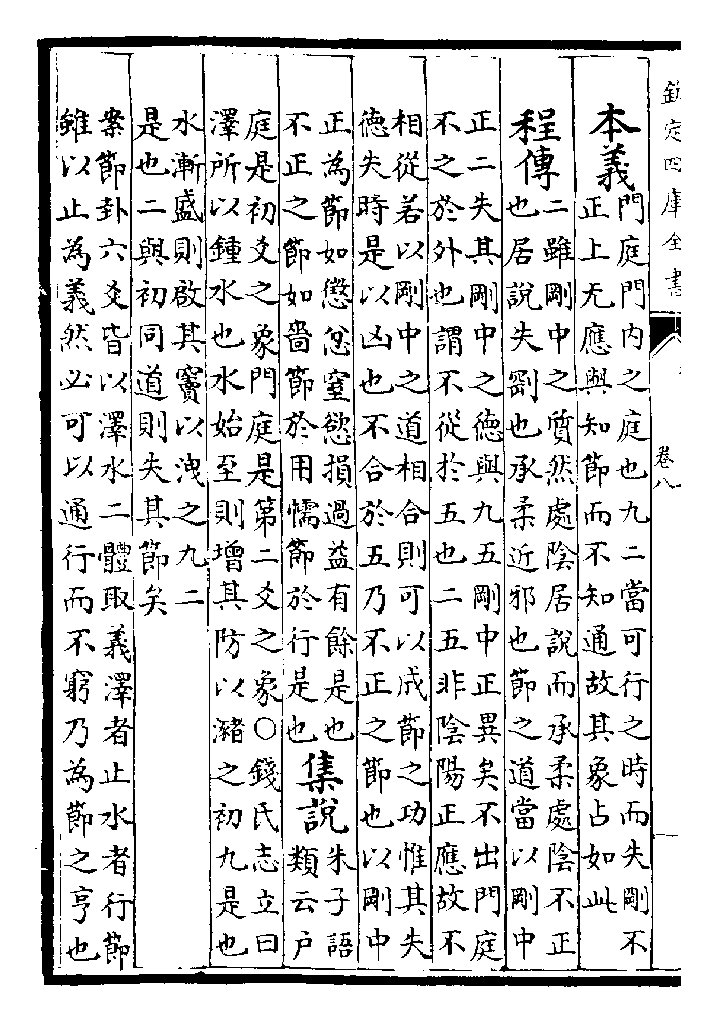 欽定四庫全書
卷八
本義
門庭門内之庭也九二當可行之時而失剛不
正上无應與知節而不知通故其象占如此
程傳
二雖剛中之質然處陰居說而承柔處陰不正
也居說失剛也承柔近邪也節之道當以剛中
正二失其剛中之德與九五剛中正異矣不出門庭
不之於外也謂不從於五也二五非陰陽正應故不
相從若以剛中之道相合則可以成節之功惟其失
德失時是以凶也不合於五乃不正之節也以剛中
正為節如懲忿窒慾損過益有餘是也
不正之節如嗇節於用懦節於行是也
集說
朱子語
類云户
庭是初爻之象門庭是第二爻之象○錢氏志立曰
澤所以鍾水也水始至則增其防以瀦之初九是也
水漸盛則啟其竇以洩之九二
是也二與初同道則失其節矣
案節卦六爻皆以澤水二體取義澤者止水者行節
雖以止為義然必可以通行而不窮乃為節之亨也